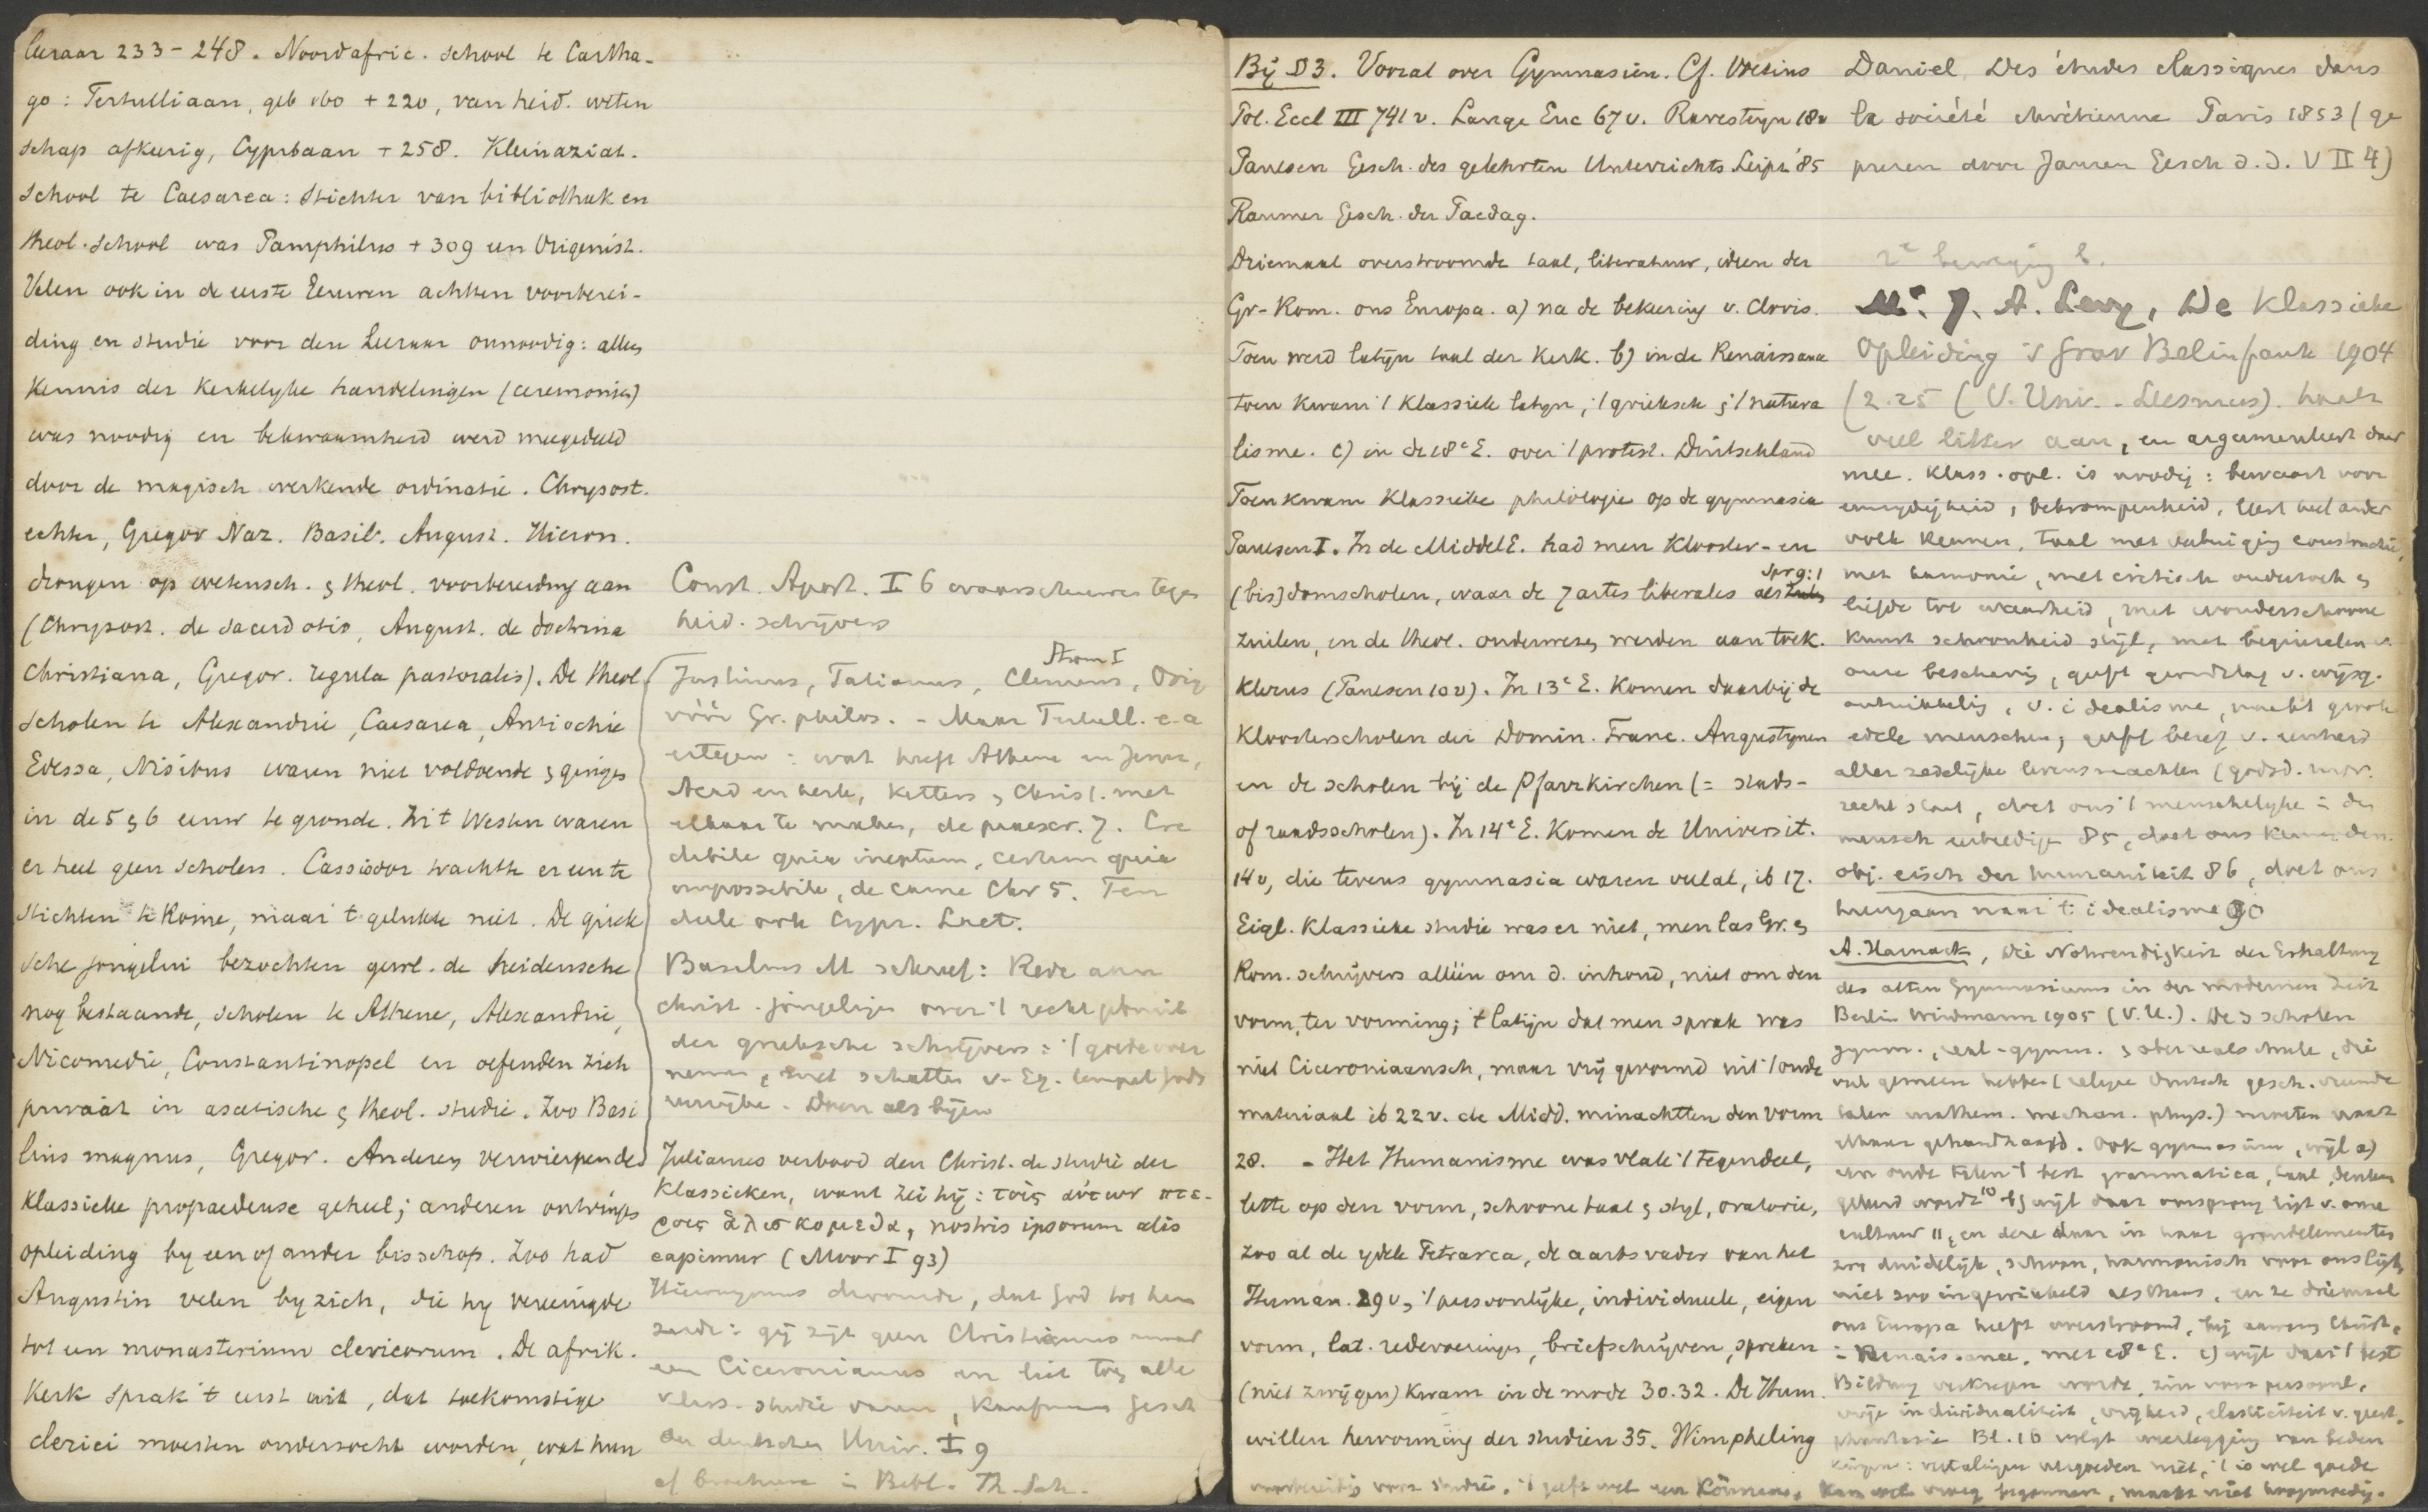 leraar 233-248. Noordafric. school te Cartha-
go: Tertulliaan, geb 160 + 220, van heid. weten
schap afkeerig, Cypriaan + 258. Kleinaziat.
school te Caesarea: stichter van bibliotheek en
theol. school was Pamphilus + 309 een Origenist.
Velen ook in de eerste Eeuwen achtten voorberei-
ding en studie voor den Leeraar onnoodig: alleen
kennis der kerkelyke handelingen (ceremoniën)
was noodig en bekwaamheid werd meegedeeld
door de magisch werkende ordinatie. Chrysost.
echter, Gregor Naz. Basil. August. Hieron.
drongen op wetensch. & theol. voorbereiding aan
(Chrysost. de sacerdotio, August. de doctrina
Christiana, Gregor. regula pastoralis). De theol
scholen te Alexandrie, Caesarea, Antiochie
Edessa, Nisibus waren niet voldoende & gingen
in de 5 & 6 eeuw te gronde. In 't Westen waren
er heel geen scholen. Cassiodor trachtte er een te
stichten te Rome, maar 't gelukte niet. De griek
sche jongelui bezochten gewl. de heidensche
nog bestaande, scholen te Athene, Alexandrie,
Nicomedie, Constantinopel en oefenden zich
privaat in ascetische & theol. studie. Zoo Basi
lius magnus, Gregor. Anderen verwierpen de
klassieke propaedeuse geheel; anderen ontvingen
opleiding by een of ander bisschop. Zoo had
Augustin velen by zich, die hy vereenigde
tot een monasterium clericorum. De afrik.
Kerk sprak 't eerst uit, dat toekomstige
clerici moesten onderzocht worden, wat hun
Const. Apost. I 6 waarschuwen tegen
heid. schrijvers
Strom I
Justinus, Tatianus, Clemens, Orig
vóór Gr. philos. - Maar Tertull. e.a
ertegen: wat heeft Athene en Jeruz,
Acad en kerk, ketters & Christ. met
elkaar te maken, de praescr. 7. Cre
dibile quia ineptum, certum quia
impossibile, de carne Chr 5. Ten
deele ook Cypr. Lact.
Basilius M schreef: Rede aan
christ. jongelingen over 't recht gebruik
der grieksche schrijvers: 't goede over
nemen, met schatten v. Eg. tempel Gods
verrijken. Doen als bijen
Julianus verbood den Christ. de studie der
klassieken, want zei hij: τοῖς αὐτῶν πτε-
ροῖς ἁλισκομεθα, nostris ipsorum alis
capimur (Moor I 93)
Hieronymus droomde, dat God tot hem
zeide: gij zijt geen Christianus maar
een Ciceronianus en liet toen alle
klass. studie varen, Kaufmann Gesch
der deutschen Univ. I 9
cf brochure in Bibl. Th. Sch.
Bij D3. Vooral over Gymnasiën. Cf. Voetius
Pol. Eccl III 741 v. Lange Enc 67 v. Ravesteyn 18v
Paulsen Gesch. des gelehrten Unterrichts Leipz '85
Raumer Gesch. der Paedag.
Driemaal overstroomde taal, literatuur, ideën der
Gr-Rom. ons Europa. a) na de bekeering v. Clovis.
Toen werd latijn taal der Kerk. b) in de Renaissance
toen kwam 't klassiek latyn, 't grieksch & 't natura
lisme. c) in de 18e E. over 't protest. Duitschland
Toen kwam klassieke philologie op de gymnasia
Paulsen I. In de MiddelE. had men klooster- en
(bis)domscholen, waar de 7 artes liberales als
Spr 9:1
zuilen, en de theol. onderwezen werden aan toek.
klerus (Paulsen 10v). In 13e E. komen daarbij de
kloosterscholen der Domin. Franc. Augustynen
en de scholen bij de Pfarrkirchen (= stads-
of raadsscholen). In 14e E. komen de Universit.
14v, die tevens gymnasia waren veelal, ib 17.
Eigl. klassieke studie was er niet, men las Gr. &
Rom. schrijvers alleen om d. inhoud, niet om den
vorm, ter vorming; 't latijn dat men sprak was
niet Ciceroniaansch, maar vrij gevormd uit 't oude
materiaal ib 22v. de Midd. minachtten den vorm
28. - Het Humanisme was vlak 't tegendeel,
lette op den vorm, schoone taal & styl, oratorie,
zoo al de ydele Petrarca, de aartsvader van het
Human. 29v, 't persoonlijke, individueele, eigen
vorm, lat. redevoeringen, briefschrijven, spreken
(niet zwijgen) kwam in de mode 30.32. De Hum.
willen hervorming der studien 35. Wimpheling
Daniel, Des études classiques dans
la société chrétienne Paris 1853 (ge
prezen door Janssen Gesch d. d. V II 4)
2e beweging
Mr. J. A. Levy, De klassieke
Opleiding 's Grav Belinfante 1904
(2.25 (V. Univ. - Leesmus). haalt
veel litter aan, en argumenteert daar
mee. Klass. opl. is noodig: bewaart voor
eenzijdigheid, bekrompenheid, leert heel ander
volk kennen, taal met constructie,
met harmonie, met critisch onderzoek &
liefde tot waarheid, met wonderschoone
kunst schoonheid stijl, met beginselen v.
onze beschaving, geeft grondslag v. wijsg.
ontwikkeling, v. idealisme, maakt groote
edele menschen, geeft besef v. eenheid
aller zedelijke levensmachten (godsd. mor.
recht staat, doet ons 't menschelijke in den
mensch eerbiedigen 85, doet ons kennen den
obj. eisch der humaniteit 86, doet ons
heengaan naar 't idealisme 90
A. Harnack, Die Nothwendigkeit der Erhaltung
des alten Gymnasiums in der modernen Zeit
Berlin Weidmann 1905 (V.U.). De 3 scholen
gymn., real-gymn. & oberrealschule, die
veel gemeen hebben (religie deutsch gesch. vreemde
talen mathem. mechan. phys.) moeten naast
elkaar gehandhaafd. Ook gymnasium, wijl a)
een oude talen 't best grammatica, taal, denken
geleerd wordt 10 b) wijl daar oorsprong ligt v. onze
cultuur 11, en deze daar in haar grondelementen
zoo duidelijk, schoon, harmonisch voor ons ligt,
niet zoo ingewikkeld als thans, en ze driemaal
ons Europa heeft overstroomd, bij Christ.,
in Renaissance, met 18e E. c) wijl daar 't best
Bildung verkregen wordt, zin voor persoonl.
vrije individualiteit, vrijheid, elasticiteit v. geest,
phantasie Bl. 16 volgt weerlegging van beden
kingen: vertalingen vergoeden niet, 't is wel goede
voorbereiding voor studie, 't geeft wel een Können, kan wel vroeg beginnen, maakt niet hoogmoedig.